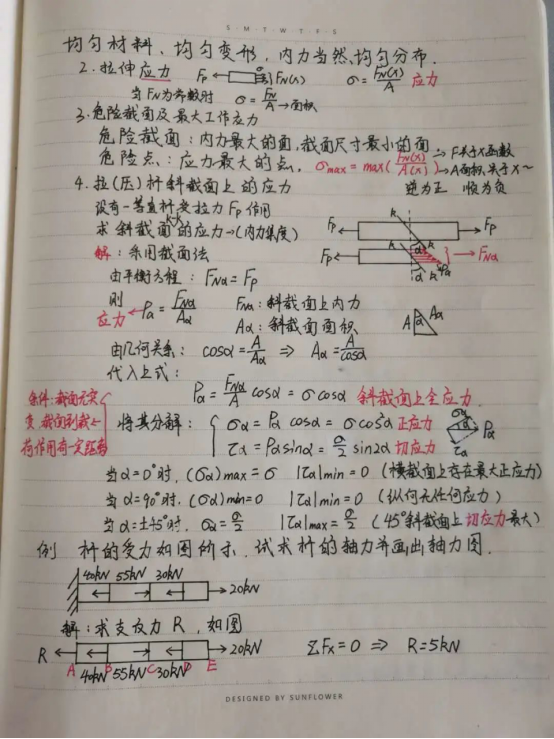 S M T W T F S
均匀材料、均匀变形，内力当然均匀分布.
2. 拉伸应力 Fp FN(x) σ=FN(x)/A 应力
当FN为常数时 σ=FN/A→面积
3. 危险截面及最大工作应力
危险截面：内力最大的面,截面尺寸最小的面
危险点：应力最大的点. σmax=max(FN(x)/A(x)) → F关于x函数 → A面积关于x~
4. 拉(压)杆斜截面上的应力 逆为正 顺为负
设有一等直杆受拉力Fp作用
求斜截面k-k的应力→(内力集度)
Fp k k Fp
Fp k α k Pα → FNα
解：采用截面法
由平衡方程：FNα=Fp
则 Pα=FNα/Aα FNα：斜截面上内力
应力 Aα：斜截面面积 A α Aα
由几何关系：cosα=A/Aα ⇒ Aα=A/cosα
代入上式：
Pα=FNα/A cosα=σcosα 斜截面上全应力.
条件：截面无突变,截面到载荷作用有一定距离
将其分解： σα=Pαcosα=σcos²α 正应力 σα Pα
τα=Pαsinα=σ/2 sin2α 切应力 τα
当α=0°时,(σα)max=σ |τα|min=0 (横截面上存在最大正应力)
当α=90°时,(σα)min=0 |τα|min=0 (纵向无任何应力)
当α=±45°时, σα=σ/2 |τα|max=σ/2 (45°斜截面上切应力最大)
例 杆的受力如图所示,试求杆的轴力并画出轴力图.
40kN 55kN 30kN
20kN
解：求支反力R,如图
R 20kN ΣFx=0 ⇒ R=5kN
A B C D E
40kN 55kN 30kN
DESIGNED BY SUNFLOWER